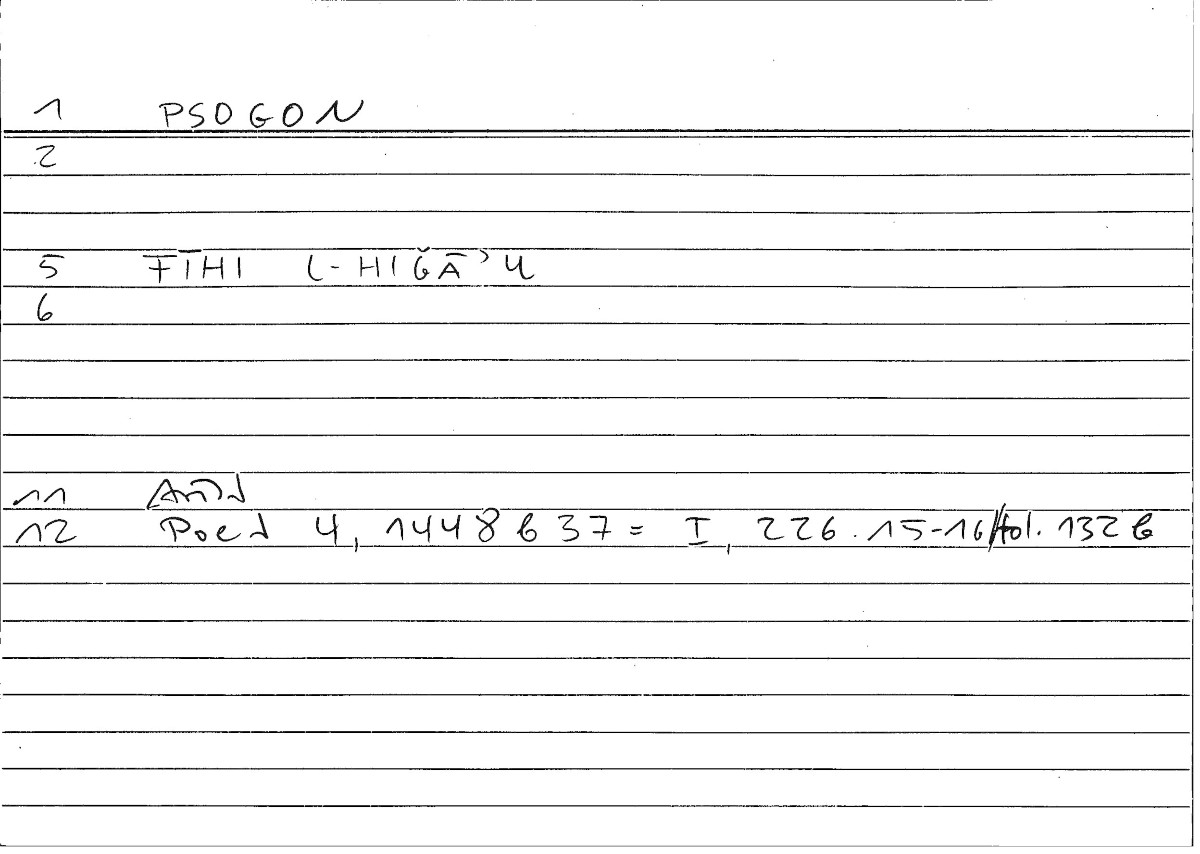 1 PSOGON
2
5 FĪHI L-HIĞĀʾU
6
11
12 Poet 4, 1448 b 37 = I, 226.15-16/fol. 132 b